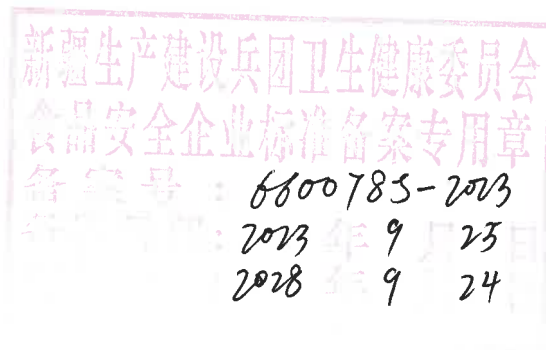 新疆生产建设兵团卫生健康委员会
食品安全企业标准备案专用章
备案号：660078S-2023
：2023年9月25日
2028年9 24